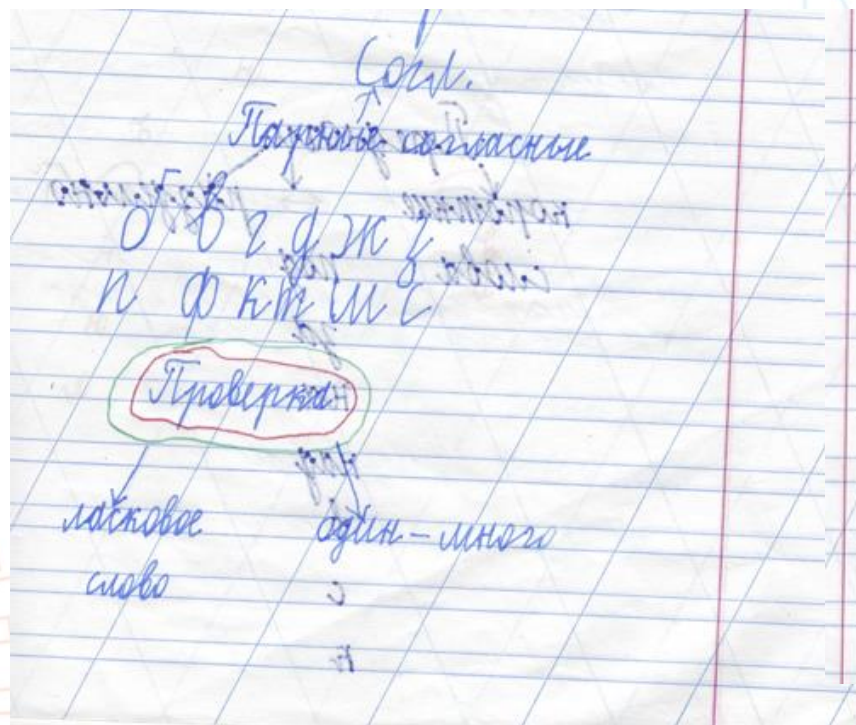 Согл.
Парные согласные
б в г д ж з
п ф к т ш с
Проверка
ласковое один – много
слово